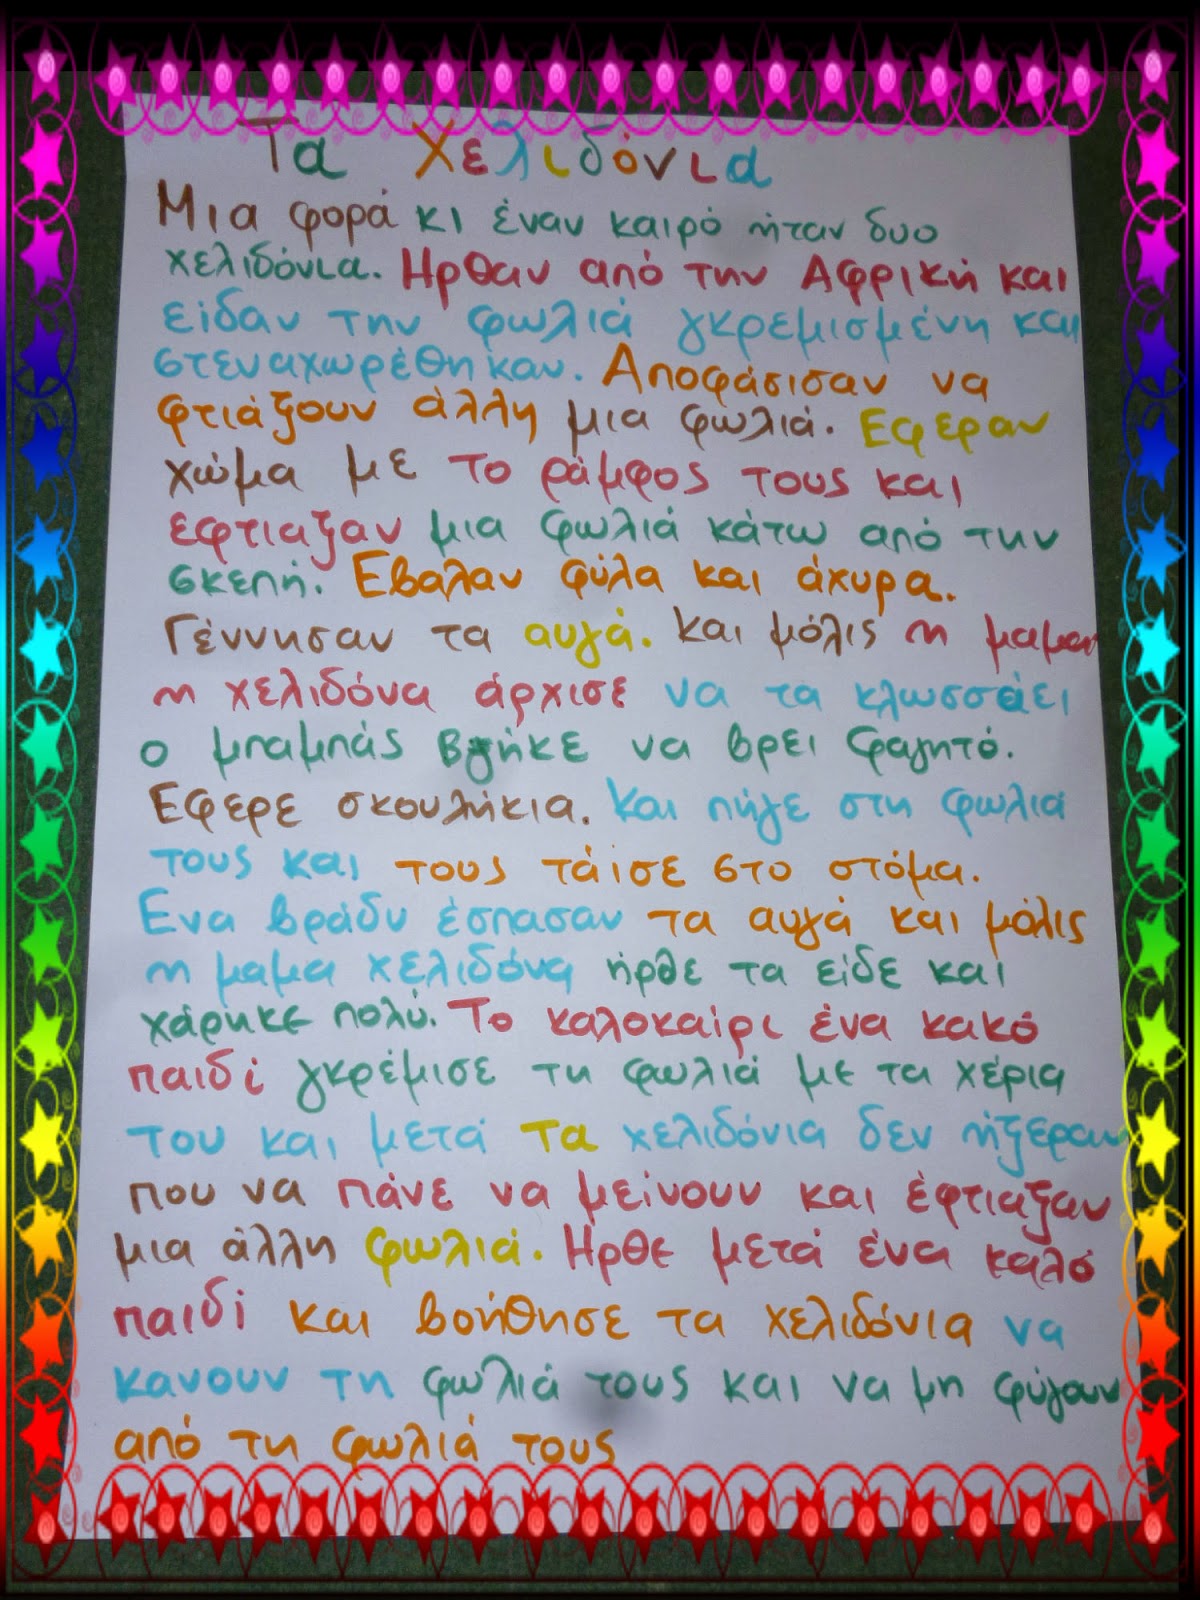 Τα Χελιδόνια
Μια φορά κι έναν καιρό ήταν δυο
χελιδόνια. Ηρθαν από την Αφρική και
είδαν την φωλιά γκρεμισμένη και
στεναχωρέθηκαν. Αποφάσισαν να
φτιάξουν άλλη μια φωλιά. Εφεραν
χώμα με το ράμφος τους και
εφτιαξαν μια φωλιά κάτω από την
σκεπή. Εβαλαν φύλα και άχυρα.
Γέννησαν τα αυγά. Και μόλις η μαμα
η χελιδόνα άρχισε να τα κλωσσάει
ο μπαμπάς βγήκε να βρει φαγητό.
Εφερε σκουλήκια. Και πήγε στη φωλιά
τους και τους τάισε στο στόμα.
Ενα βράδυ έσπασαν τα αυγά και μόλις
η μαμα χελιδόνα ήρθε τα είδε και
χάρηκε πολύ. Το καλοκαίρι ένα κακό
παιδί γκρέμισε τη φωλιά με τα χέρια
του και μετά τα χελιδόνια δεν ήξεραν
που να πάνε να μείνουν και έφτιαξαν
μια άλλη φωλιά. Ηρθε μετά ένα καλό
παιδί και βοήθησε τα χελιδόνια να
κανουν τη φωλιά τους και να μη φύγουν
από τη φωλιά τους